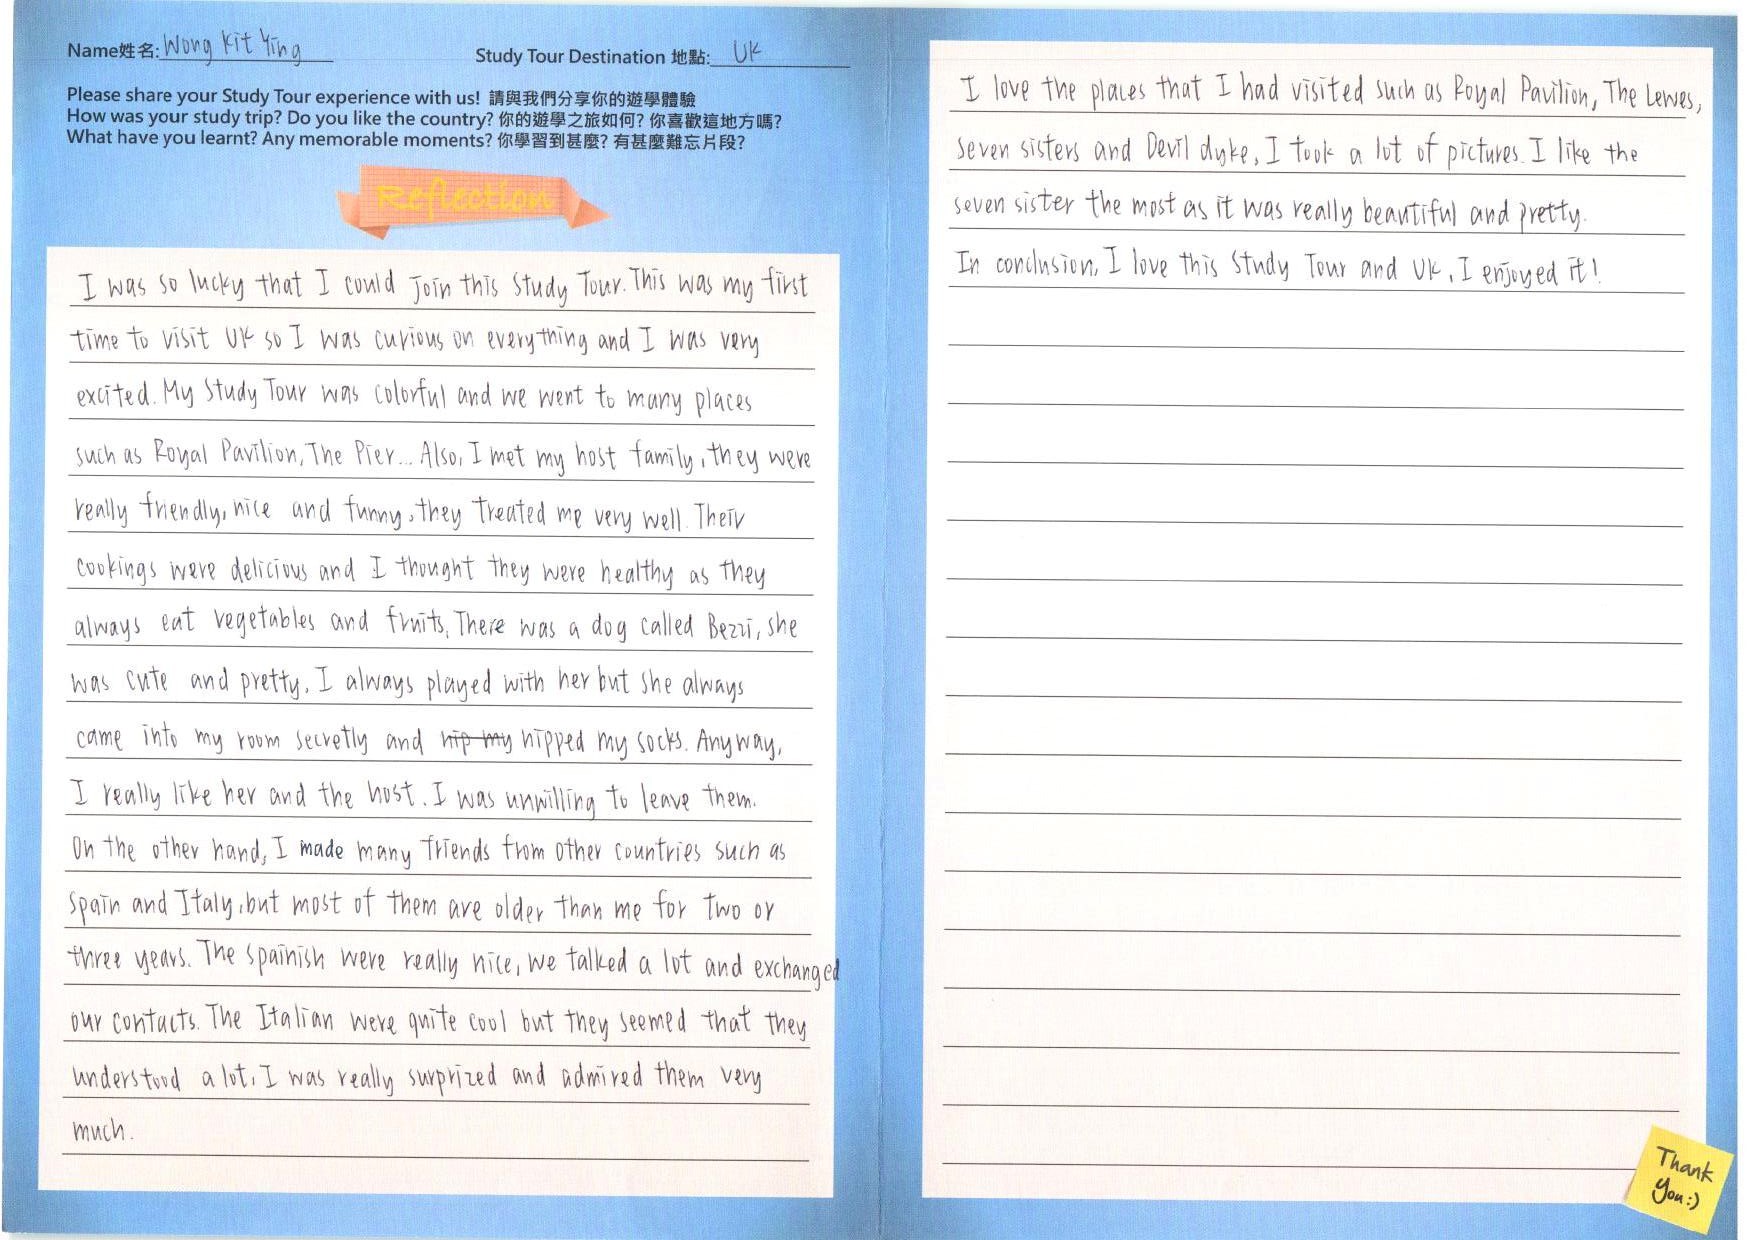 Name姓名: Wong Kit Ying
Study Tour Destination 地點: UK
Please share your Study Tour experience with us! 請與我們分享你的遊學體驗
How was your study trip? Do you like the country? 你的遊學之旅如何? 你喜歡這地方嗎?
What have you learnt? Any memorable moments? 你學習到甚麼? 有甚麼難忘片段?
Reflection
I was so lucky that I could join this Study Tour. This was my first
time to visit UK so I was curious on everything and I was very
excited. My Study Tour was colorful and we went to many places
such as Royal Pavilion, The Pier... Also, I met my host family, they were
really friendly, nice and funny, they treated me very well. Their
cookings were delicious and I thought they were healthy as they
always eat vegetables and fruits. There was a dog called Bezzi, she
was cute and pretty, I always played with her but she always
came into my room secretly and nip my nipped my socks. Anyway,
I really like her and the host. I was unwilling to leave them.
On the other hand, I made many friends from other countries such as
Spain and Italy, but most of them are older than me for two or
three years. The Spainish were really nice, we talked a lot and exchanged
our contacts. The Italian were quite cool but they seemed that they
understood a lot, I was really surprized and admired them very
much.
I love the places that I had visited such as Royal Pavilion, The Lewes,
seven sisters and Devil dyke, I took a lot of pictures. I like the
seven sister the most as it was really beautiful and pretty.
In conclusion, I love this Study Tour and UK, I enjoyed it!
Thank
you:)